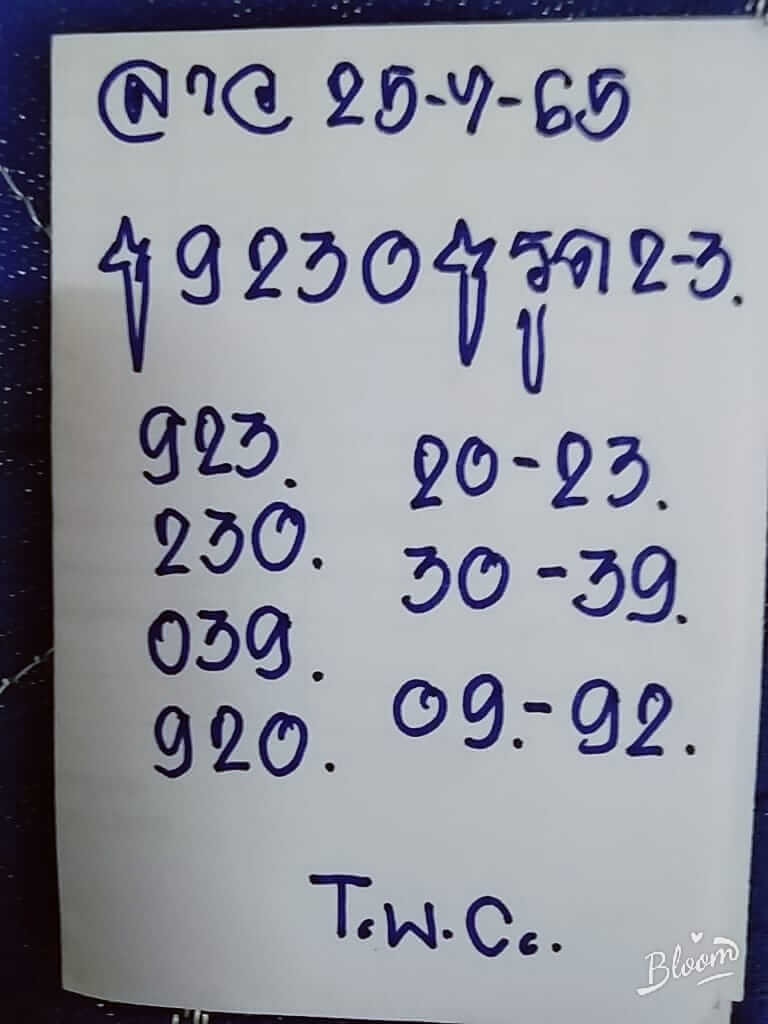 ลาว 25-7-65
9230 รูด 2-3.
923. 20-23.
230. 30-39.
039. 09.-92.
920.
T.พ.C..
Bloom